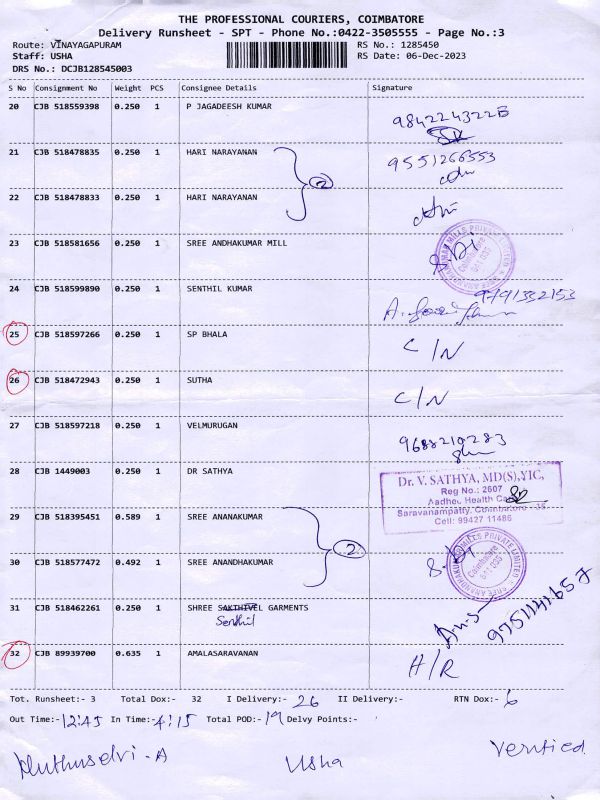 THE PROFESSIONAL COURIERS, COIMBATORE
Delivery Runsheet - SPT - Phone No.:0422-3505555 - Page No.:3
Route: VINAYAGAPURAM RS No.: 1285450
Staff: USHA RS Date: 06-Dec-2023
DRS No.: DCJB128545003
S No Consignment No Weight PCS Consignee Details Signature
20 CJB 518559398 0.250 1 P JAGADEESH KUMAR
21 CJB 518478835 0.250 1 HARI NARAYANAN 9551266553
2
22 CJB 518478833 0.250 1 HARI NARAYANAN
23 CJB 518581656 0.250 1 SREE ANDHAKUMAR MILL
24 CJB 518599890 0.250 1 SENTHIL KUMAR
25 CJB 518597266 0.250 1 SP BHALA C/N
26 CJB 518472943 0.250 1 SUTHA C/N
27 CJB 518597218 0.250 1 VELMURUGAN 9688219283
28 CJB 1449003 0.250 1 DR SATHYA
Dr. V. SATHYA, MD(S),YIC,
Reg No.: 2607
Aadhou Health
Saravanampatty, Coimbatore - 35
Cell: 99427 11486
29 CJB 518395451 0.589 1 SREE ANANAKUMAR
2
30 CJB 518577472 0.492 1 SREE ANANDHAKUMAR
31 CJB 518462261 0.250 1 SHREE SAKTHIVEL GARMENTS
Senthil
32 CJB 89939700 0.635 1 AMALASARAVANAN H/R
Tot. Runsheet:- 3 Total Dox:- 32 I Delivery:- 26 II Delivery:- RTN Dox:- 6
Out Time:- 12:45 In Time:- 4:15 Total POD:- 19 Delvy Points:-
Muthuselvi.A Usha Verified